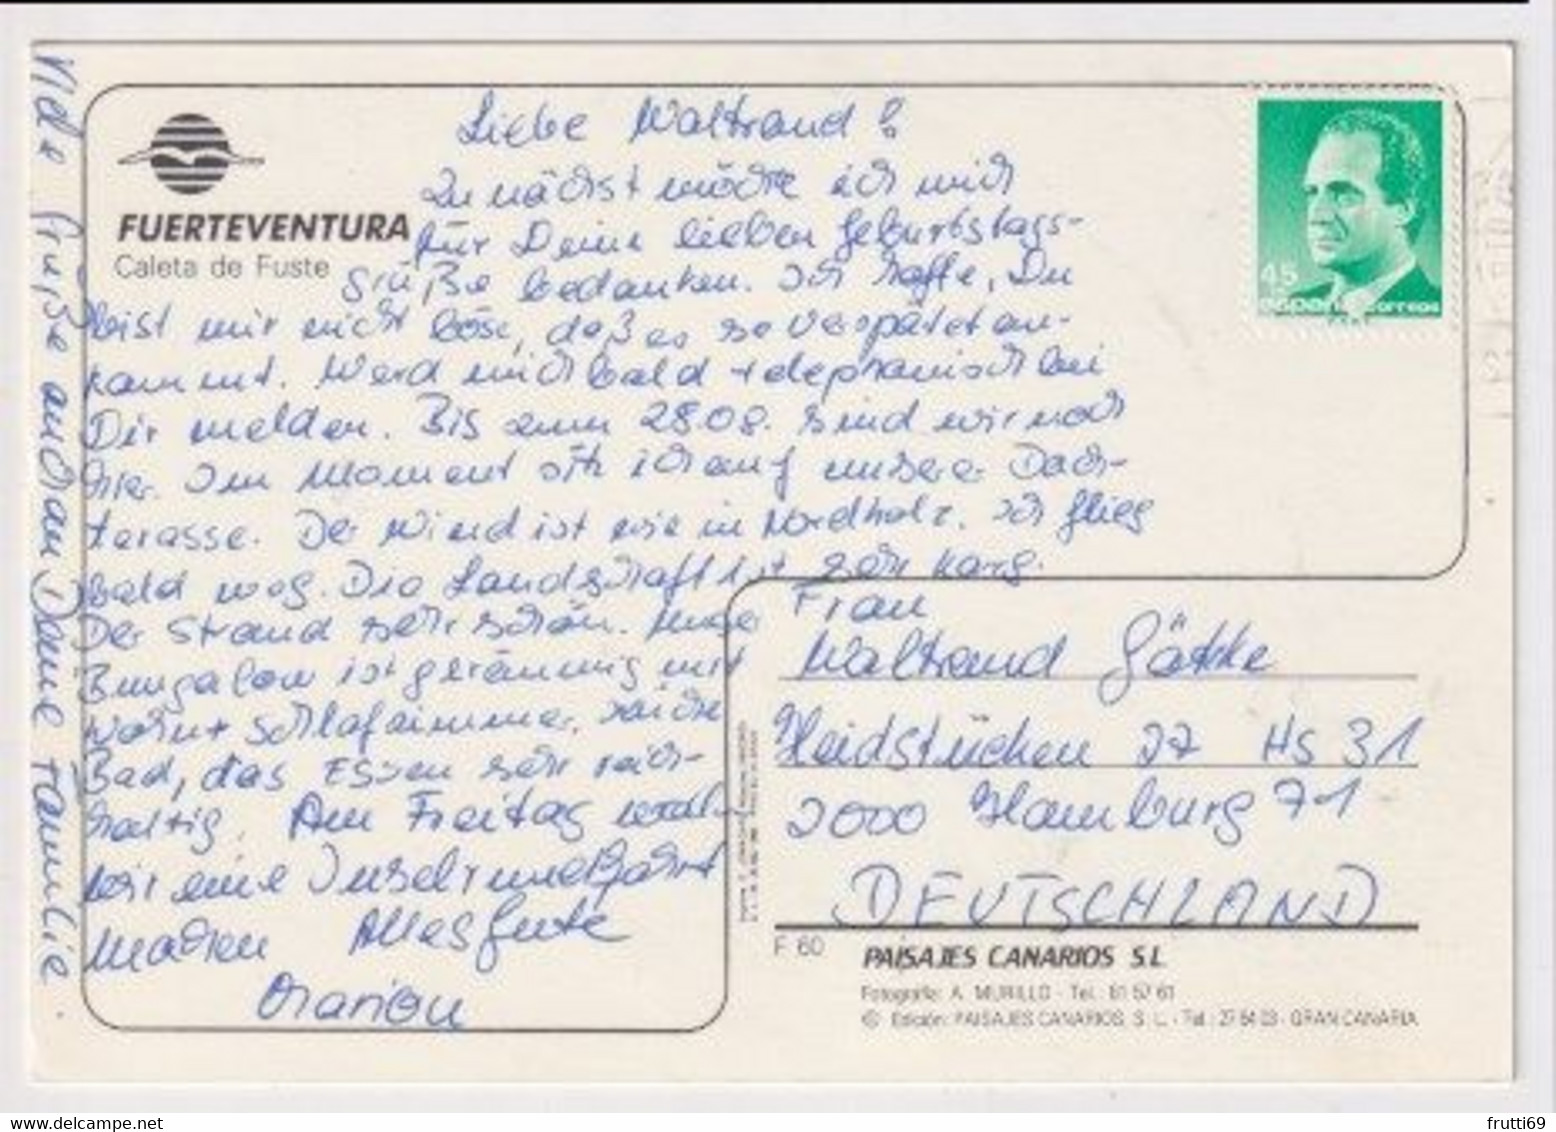 Liebe Waltraud!
FUERTEVENTURA
Caleta de Fuste
Zunächst möchte ich mich
für Deine lieben Geburtstags-
grüße bedanken. Ich hoffe, Du
bist mir nicht böse, daß es so verspätet an-
kommt. Werd mich bald telephonisch bei
Dir melden. Bis zum 28.08. sind wir noch
hier. Im Moment sitz ich auf unserer Dach-
terasse. Der Wind ist wie in Nordholz. Ich flieg
bald weg. Die Landschaft ist sehr karg.
Der Strand sehr schön. Unser
Bungalow ist geräumig mit
Wohn + Schlafzimmer, Küche
Bad, das Essen sehr reich-
haltig. Am Freitag wollen
wir eine Inselrundfahrt
machen Alles Gute
Marion
Viele Grüße auch an Deine Familie.
45
ESPAÑA CORREOS
Frau
Waltraud Gätke
Heidstücken 27 Hs 31
2000 Hamburg 71
DEUTSCHLAND
F 60
PAISAJES CANARIOS S.L.
Fotografía: A. MURILLO - Tel. 61 57 61
© Edición: PAISAJES CANARIOS, S. L. - Tel.: 27 64 03 - GRAN CANARIA
frutti69